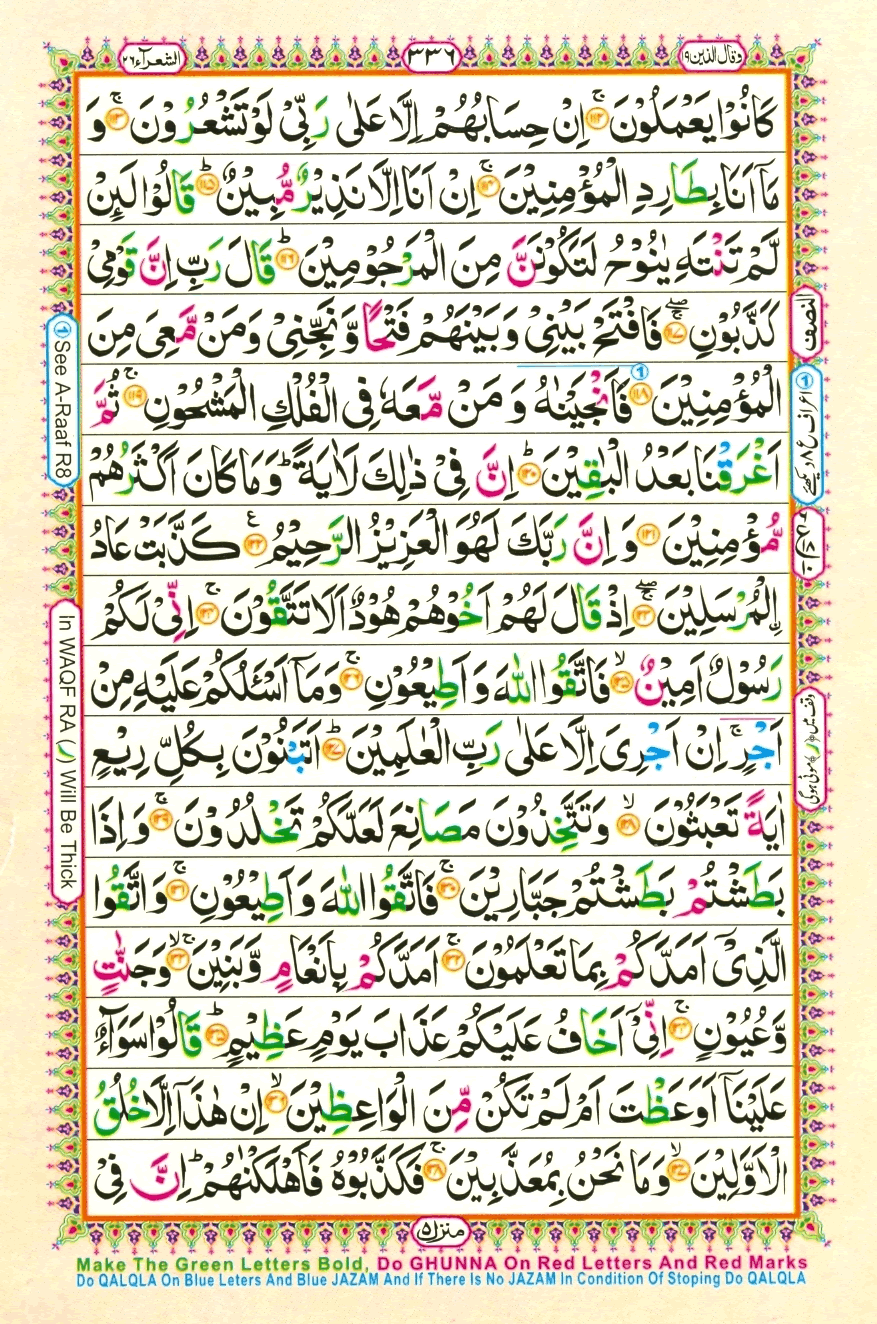 وقال الذين ۱۹
۳۳٦
الشعرآء ۲٦
كَانُوْا يَعْمَلُوْنَ ۚ﴿۱۱۲﴾ اِنْ حِسَابُهُمْ اِلَّا عَلٰى رَبِّىْ لَوْ تَشْعُرُوْنَ ۚ﴿۱۱۳﴾ وَ
مَاۤ اَنَا بِطَارِدِ الْمُؤْمِنِيْنَ ۚ﴿۱۱۴﴾ اِنْ اَنَا اِلَّا نَذِيْرٌ مُّبِيْنٌ ؕ﴿۱۱۵﴾ قَالُوْا لَىِٕنْ
لَّمْ تَنْتَهِ يٰنُوْحُ لَتَكُوْنَنَّ مِنَ الْمَرْجُوْمِيْنَ ؕ﴿۱۱۶﴾ قَالَ رَبِّ اِنَّ قَوْمِىْ
كَذَّبُوْنِ ۚۖ﴿۱۱۷﴾ فَافْتَحْ بَيْنِىْ وَبَيْنَهُمْ فَتْحًا وَّنَجِّنِىْ وَمَنْ مَّعِىَ مِنَ
الْمُؤْمِنِيْنَ ﴿۱۱۸﴾ فَاَنْجَيْنٰهُ وَمَنْ مَّعَهٗ فِى الْفُلْكِ الْمَشْحُوْنِ ۚ﴿۱۱۹﴾ ثُمَّ
اَغْرَقْنَا بَعْدُ الْبٰقِيْنَ ؕ﴿۱۲۰﴾ اِنَّ فِىْ ذٰلِكَ لَاٰيَةً ؕ وَمَا كَانَ اَكْثَرُهُمْ
مُّؤْمِنِيْنَ ﴿۱۲۱﴾ وَاِنَّ رَبَّكَ لَهُوَ الْعَزِيْزُ الرَّحِيْمُ ﴿۱۲۲﴾ ع كَذَّبَتْ عَادُ
ۨالْمُرْسَلِيْنَ ۚۖ﴿۱۲۳﴾ اِذْ قَالَ لَهُمْ اَخُوْهُمْ هُوْدٌ اَلَا تَتَّقُوْنَ ۚ﴿۱۲۴﴾ اِنِّىْ لَكُمْ
رَسُوْلٌ اَمِيْنٌ ۙ﴿۱۲۵﴾ فَاتَّقُوا اللّٰهَ وَاَطِيْعُوْنِ ۚ﴿۱۲۶﴾ وَمَاۤ اَسْـَٔلُكُمْ عَلَيْهِ مِنْ
اَجْرٍ ۚ اِنْ اَجْرِىَ اِلَّا عَلٰى رَبِّ الْعٰلَمِيْنَ ؕ﴿۱۲۷﴾ اَتَبْنُوْنَ بِكُلِّ رِيْعٍ
اٰيَةً تَعْبَثُوْنَ ۙ﴿۱۲۸﴾ وَتَتَّخِذُوْنَ مَصَانِعَ لَعَلَّكُمْ تَخْلُدُوْنَ ۚ﴿۱۲۹﴾ وَاِذَا
بَطَشْتُمْ بَطَشْتُمْ جَبَّارِيْنَ ۚ﴿۱۳۰﴾ فَاتَّقُوا اللّٰهَ وَاَطِيْعُوْنِ ۚ﴿۱۳۱﴾ وَاتَّقُوا
الَّذِىْۤ اَمَدَّكُمْ بِمَا تَعْلَمُوْنَ ۚ﴿۱۳۲﴾ اَمَدَّكُمْ بِاَنْعَامٍ وَّبَنِيْنَ ۚۙ﴿۱۳۳﴾ وَجَنّٰتٍ
وَّعُيُوْنٍ ۚ﴿۱۳۴﴾ اِنِّىْۤ اَخَافُ عَلَيْكُمْ عَذَابَ يَوْمٍ عَظِيْمٍ ؕ﴿۱۳۵﴾ قَالُوْا سَوَآءٌ
عَلَيْنَاۤ اَوَعَظْتَ اَمْ لَمْ تَكُنْ مِّنَ الْوَاعِظِيْنَ ۙ﴿۱۳۶﴾ اِنْ هٰذَاۤ اِلَّا خُلُقُ
الْاَوَّلِيْنَ ۙ﴿۱۳۷﴾ وَمَا نَحْنُ بِمُعَذَّبِيْنَ ۚ﴿۱۳۸﴾ فَكَذَّبُوْهُ فَاَهْلَكْنٰهُمْ ؕ اِنَّ فِىْ
النصف
① اعراف ع ۸ دیکھئے
وقف میں (ر) موٹی ہوگی
① See A-Raaf R8
In WAQF RA (ر) Will Be Thick
منزل ۵
Make The Green Letters Bold, Do GHUNNA On Red Letters And Red Marks
Do QALQLA On Blue Leters And Blue JAZAM And If There Is No JAZAM In Condition Of Stoping Do QALQLA